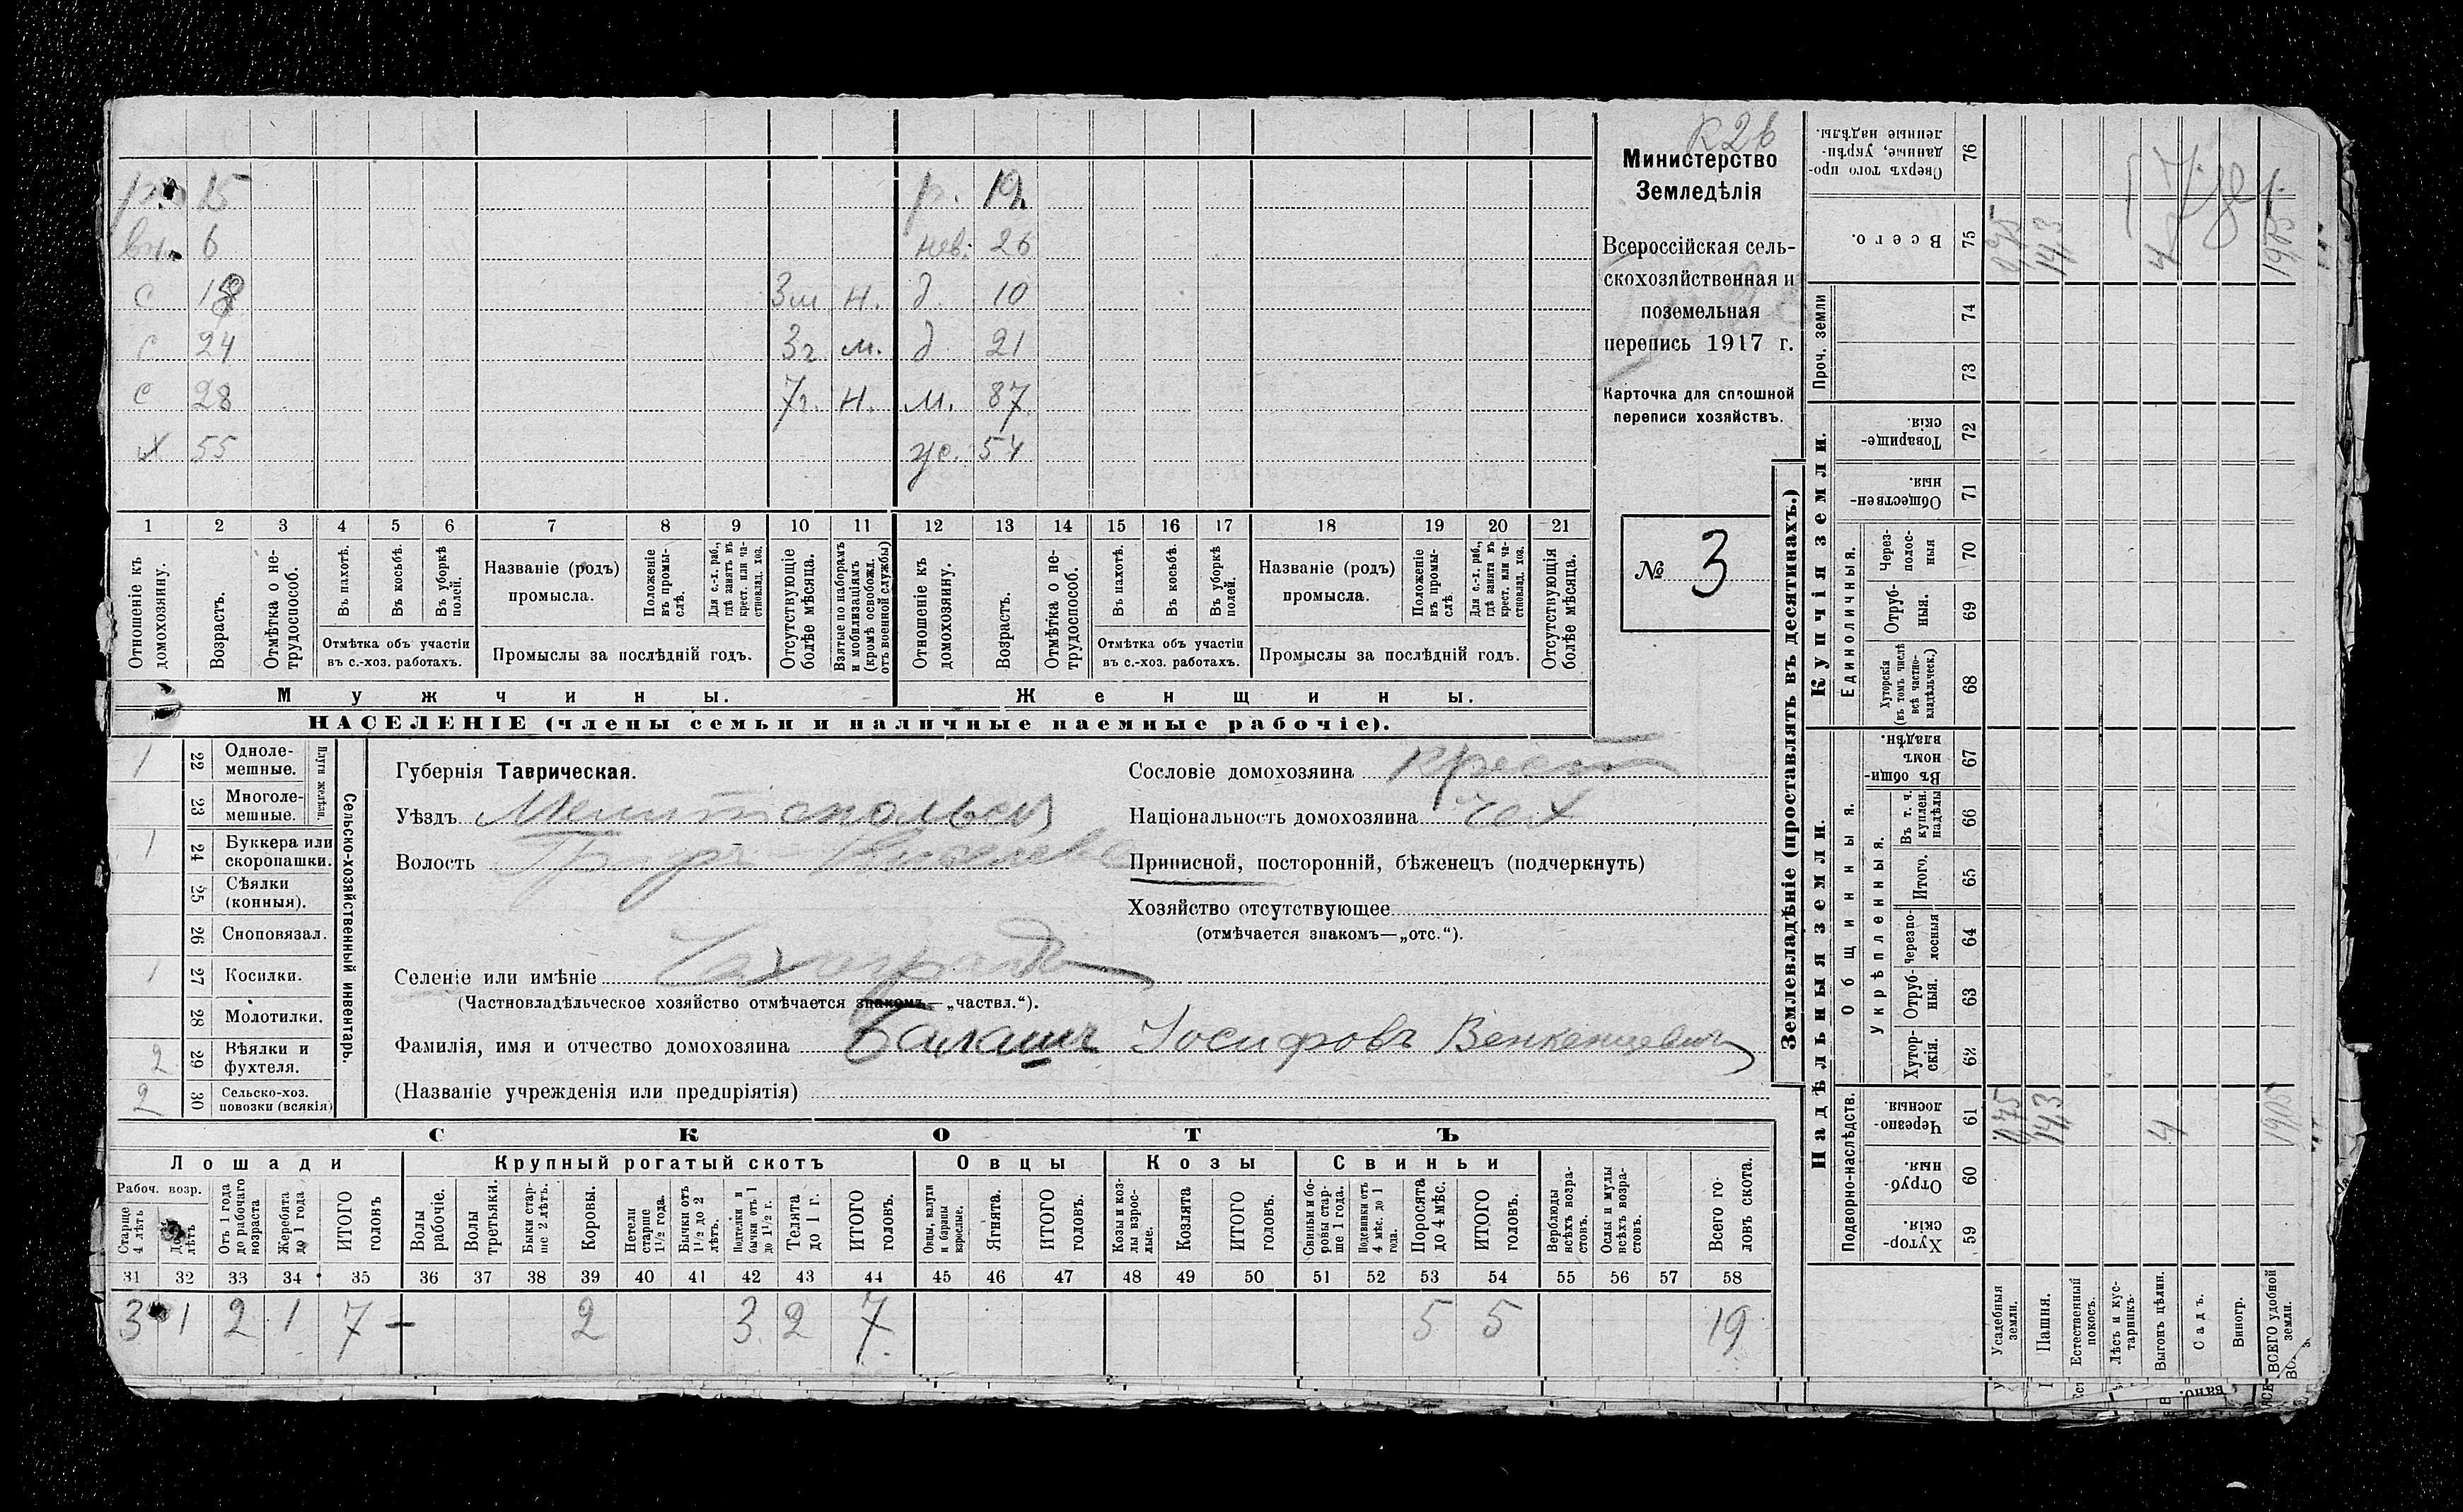 К26
Министерство
Земледѣлія
Всероссійская сель-
скохозяйственная и
поземельная
перепись 1917 г.
Карточка для сплошной
переписи хозяйствъ.
№ 3
15 р. 19
вн. 6 нев. 26
с 18 3м н. д. 10
с 24 3г м. д 21
с 28 7г. н. м. 87
х 55 ж. 54
1 2 3 4 5 6 7 8 9 10 11 12 13 14 15 16 17 18 19 20 21
Отношеніе къ домохозяину.
Возрастъ.
Отмѣтка о не-трудоспособ.
Въ пахотѣ.
Въ косьбѣ.
Въ уборкѣ полей.
Отмѣтка объ участіи въ с.-хоз. работахъ.
Названіе (родъ) промысла.
Положеніе въ промы-слѣ.
Для с.-х. раб., гдѣ занятъ въ крест. или ча-стновлад. хоз.
Промыслы за послѣдній годъ.
Отсутствующіе болѣе мѣсяца.
Взятые по наборамъ и мобилизаціямъ (кромѣ освобожд. отъ военной службы)
Отношеніе къ домохозяину.
Возрастъ.
Отмѣтка о не-трудоспособ.
Въ пахотѣ.
Въ косьбѣ.
Въ уборкѣ полей.
Отмѣтка объ участіи въ с.-хоз. работахъ.
Названіе (родъ) промысла.
Положеніе въ промы-слѣ.
Для с.-х. раб., гдѣ занята въ крест. или ча-стновлад. хоз.
Промыслы за послѣдній годъ.
Отсутствующія болѣе мѣсяца.
Мужчины. Женщины.
НАСЕЛЕНІЕ (члены семьи и наличные наемные рабочіе).
Сельско-хозяйственный инвентарь.
Плуги желѣзн.
1 22 Одноле-мешные.
23 Многоле-мешные.
1 24 Буккера или скоропашки.
25 Сѣялки (конныя).
26 Сноповязал.
1 27 Косилки.
28 Молотилки.
2 29 Вѣялки и фухтеля.
2 30 Сельско-хоз. повозки (всякія)
Губернія Таврическая.
Уѣздъ Мелитопольск
Волость
Селеніе или имѣніе Чехоградъ
(Частновладѣльческое хозяйство отмѣчается знакомъ—„частвл.“).
Фамилія, имя и отчество домохозяина Балашъ Іосифовъ Венкенцевичъ
(Названіе учрежденія или предпріятія)
Сословіе домохозяина крест
Національность домохозяина чех
Приписной, посторонній, бѣженецъ (подчеркнуть)
Хозяйство отсутствующее
(отмѣчается знакомъ—„отс.“).
СКОТЪ
Лошади Крупный рогатый скотъ Овцы Козы Свиньи
Рабоч. возр.
Старше 4 лѣтъ
лѣтъ
Отъ 1 года до рабочаго возраста
Жеребята до 1 года
ИТОГО головъ
Волы рабочіе.
Волы третьяки.
Быки стар-ше 2 лѣтъ.
Коровы.
Нетели старше 1½ года.
Бычки отъ 1½ до 2 лѣтъ.
Подтелки и бычки отъ 1 до 1½ г.
Телята до 1 г.
ИТОГО головъ.
Овцы, валухи и бараны взрослые.
Ягнята.
ИТОГО головъ.
Козы и коз-лы взрос-лые.
Козлята
ИТОГО головъ.
Свиньи и бо-ровы стар-ше 1 года.
Подсвинки отъ 4 мѣс. до 1 года.
Поросята до 4 мѣс.
ИТОГО головъ.
Верблюды всѣхъ возра-стовъ.
Ослы и мулы всѣхъ возра-стовъ.
Всего го-ловъ скота.
31 32 33 34 35 36 37 38 39 40 41 42 43 44 45 46 47 48 49 50 51 52 53 54 55 56 57 58
3 1 2 1 7 2 3 2 7 5 5 19
Землевладѣніе (проставлять въ десятинахъ.)
Сверхъ того про-данные, укрѣп-ленные надѣлы. 76
Всего. 75 14,3 4
Проч. земли 74
73
Купчія земли.
Товарище-скія. 72
Обществен-ныя. 71
Единоличныя.
Через-полос-ныя 70
Отруб-ныя. 69
Хуторскія (въ томъ числѣ всѣ частно-владѣльческ.) 68
Надѣльныя земли.
Общинныя.
Въ общин-номъ владѣн. 67
Укрѣпленныя.
Въ т. ч. куплен. надѣлы 66
Итого. 65
Черезпо-лосныя 64
Отруб-ныя. 63
Хутор-скія. 62
Подворно-наслѣдств.
Черезпо-лосныя. 61 14,3 4
Отруб-ныя. 60
Хутор-скія. 59
Усадебныя земли.
Пашня.
Естественный покосъ.
Лѣсъ и кус-тарникъ.
Выгонъ цѣлин.
Садъ.
Виногр.
ВСЕГО удобной земли.